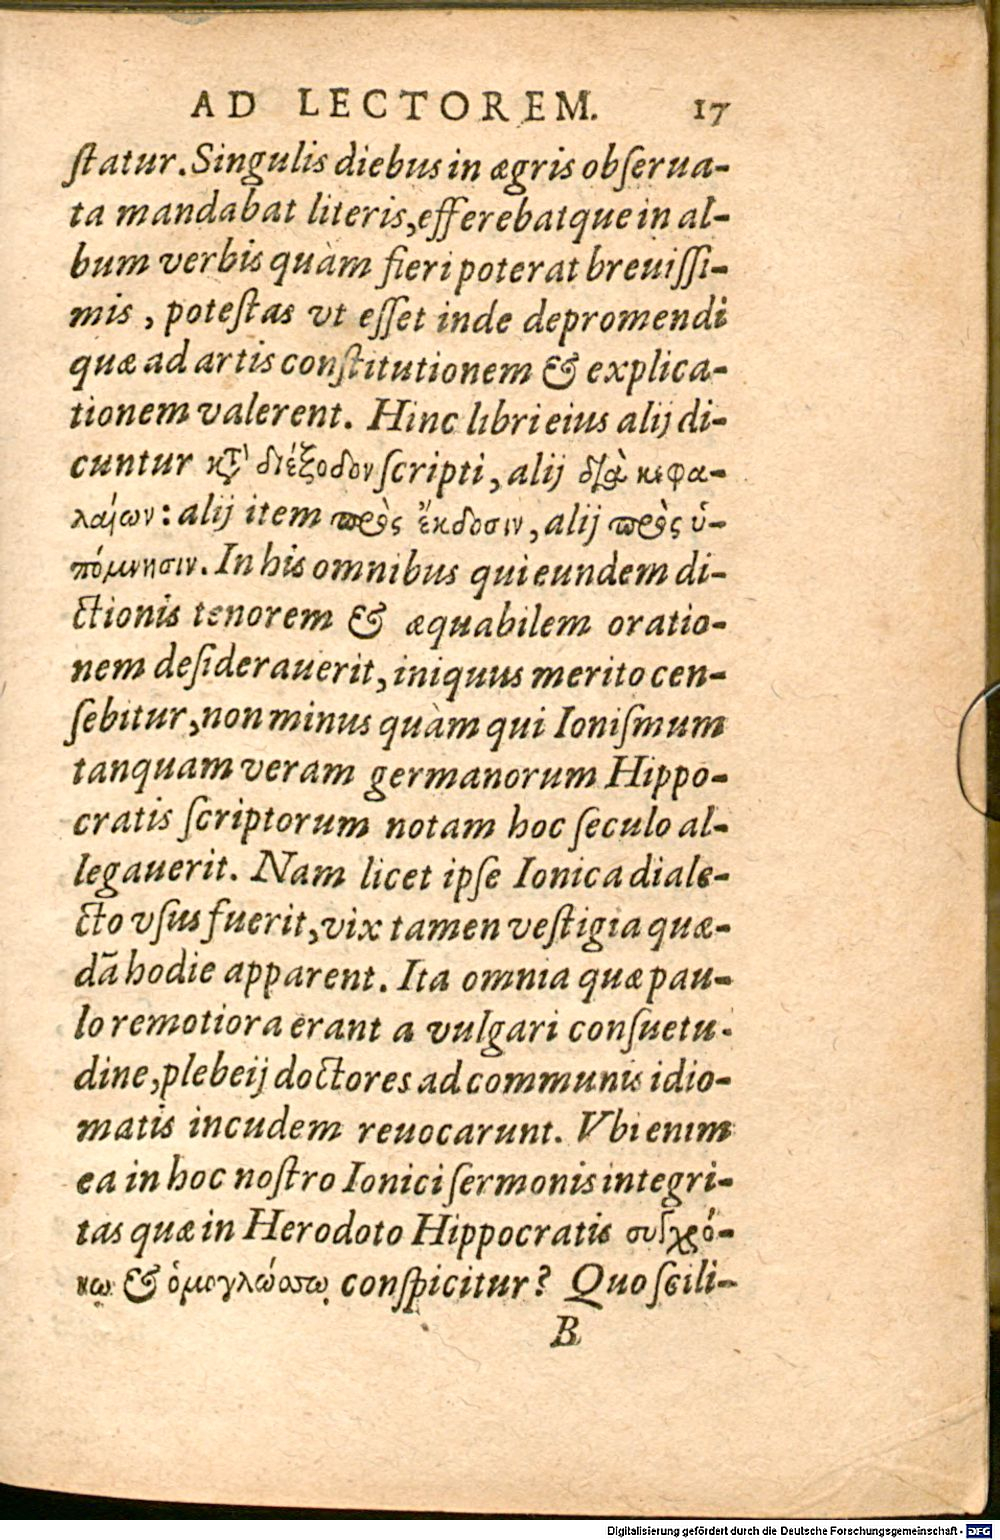 AD LECTOREM. 17
ſtatur. Singulis diebus in ægris obſerua-
ta mandabat literis, efferebatque in al-
bum verbis quàm fieri poterat breuiſſi-
mis, poteſtas vt eſſet inde depromendi
quæ ad artis conſtitutionem & explica-
tionem valerent. Hinc libri eius alij di-
cuntur κτ̀ διέξοδον ſcripti, alij διὰ κεφα-
λαίων: alij item πρὸς ἔκδοσιν, alij πρὸς ὑ-
πόμνησιν. In his omnibus qui eundem di-
ctionis tenorem & æquabilem oratio-
nem deſiderauerit, iniquus merito cen-
ſebitur, non minus quàm qui Ioniſmum
tanquam veram germanorum Hippo-
cratis ſcriptorum notam hoc ſeculo al-
legauerit. Nam licet ipſe Ionica diale-
cto vſus fuerit, vix tamen veſtigia quæ-
dā hodie apparent. Ita omnia quæ pau-
lo remotiora erant a vulgari conſuetu-
dine, plebeij doctores ad communis idio-
matis incudem reuocarunt. Vbi enim
ea in hoc noſtro Ionici ſermonis integri-
tas quæ in Herodoto Hippocratis συγχρό-
νῳ & ὁμογλώσσῳ conſpicitur? Quo ſcili-
B
Digitalisierung gefördert durch die Deutsche Forschungsgemeinschaft - DFG